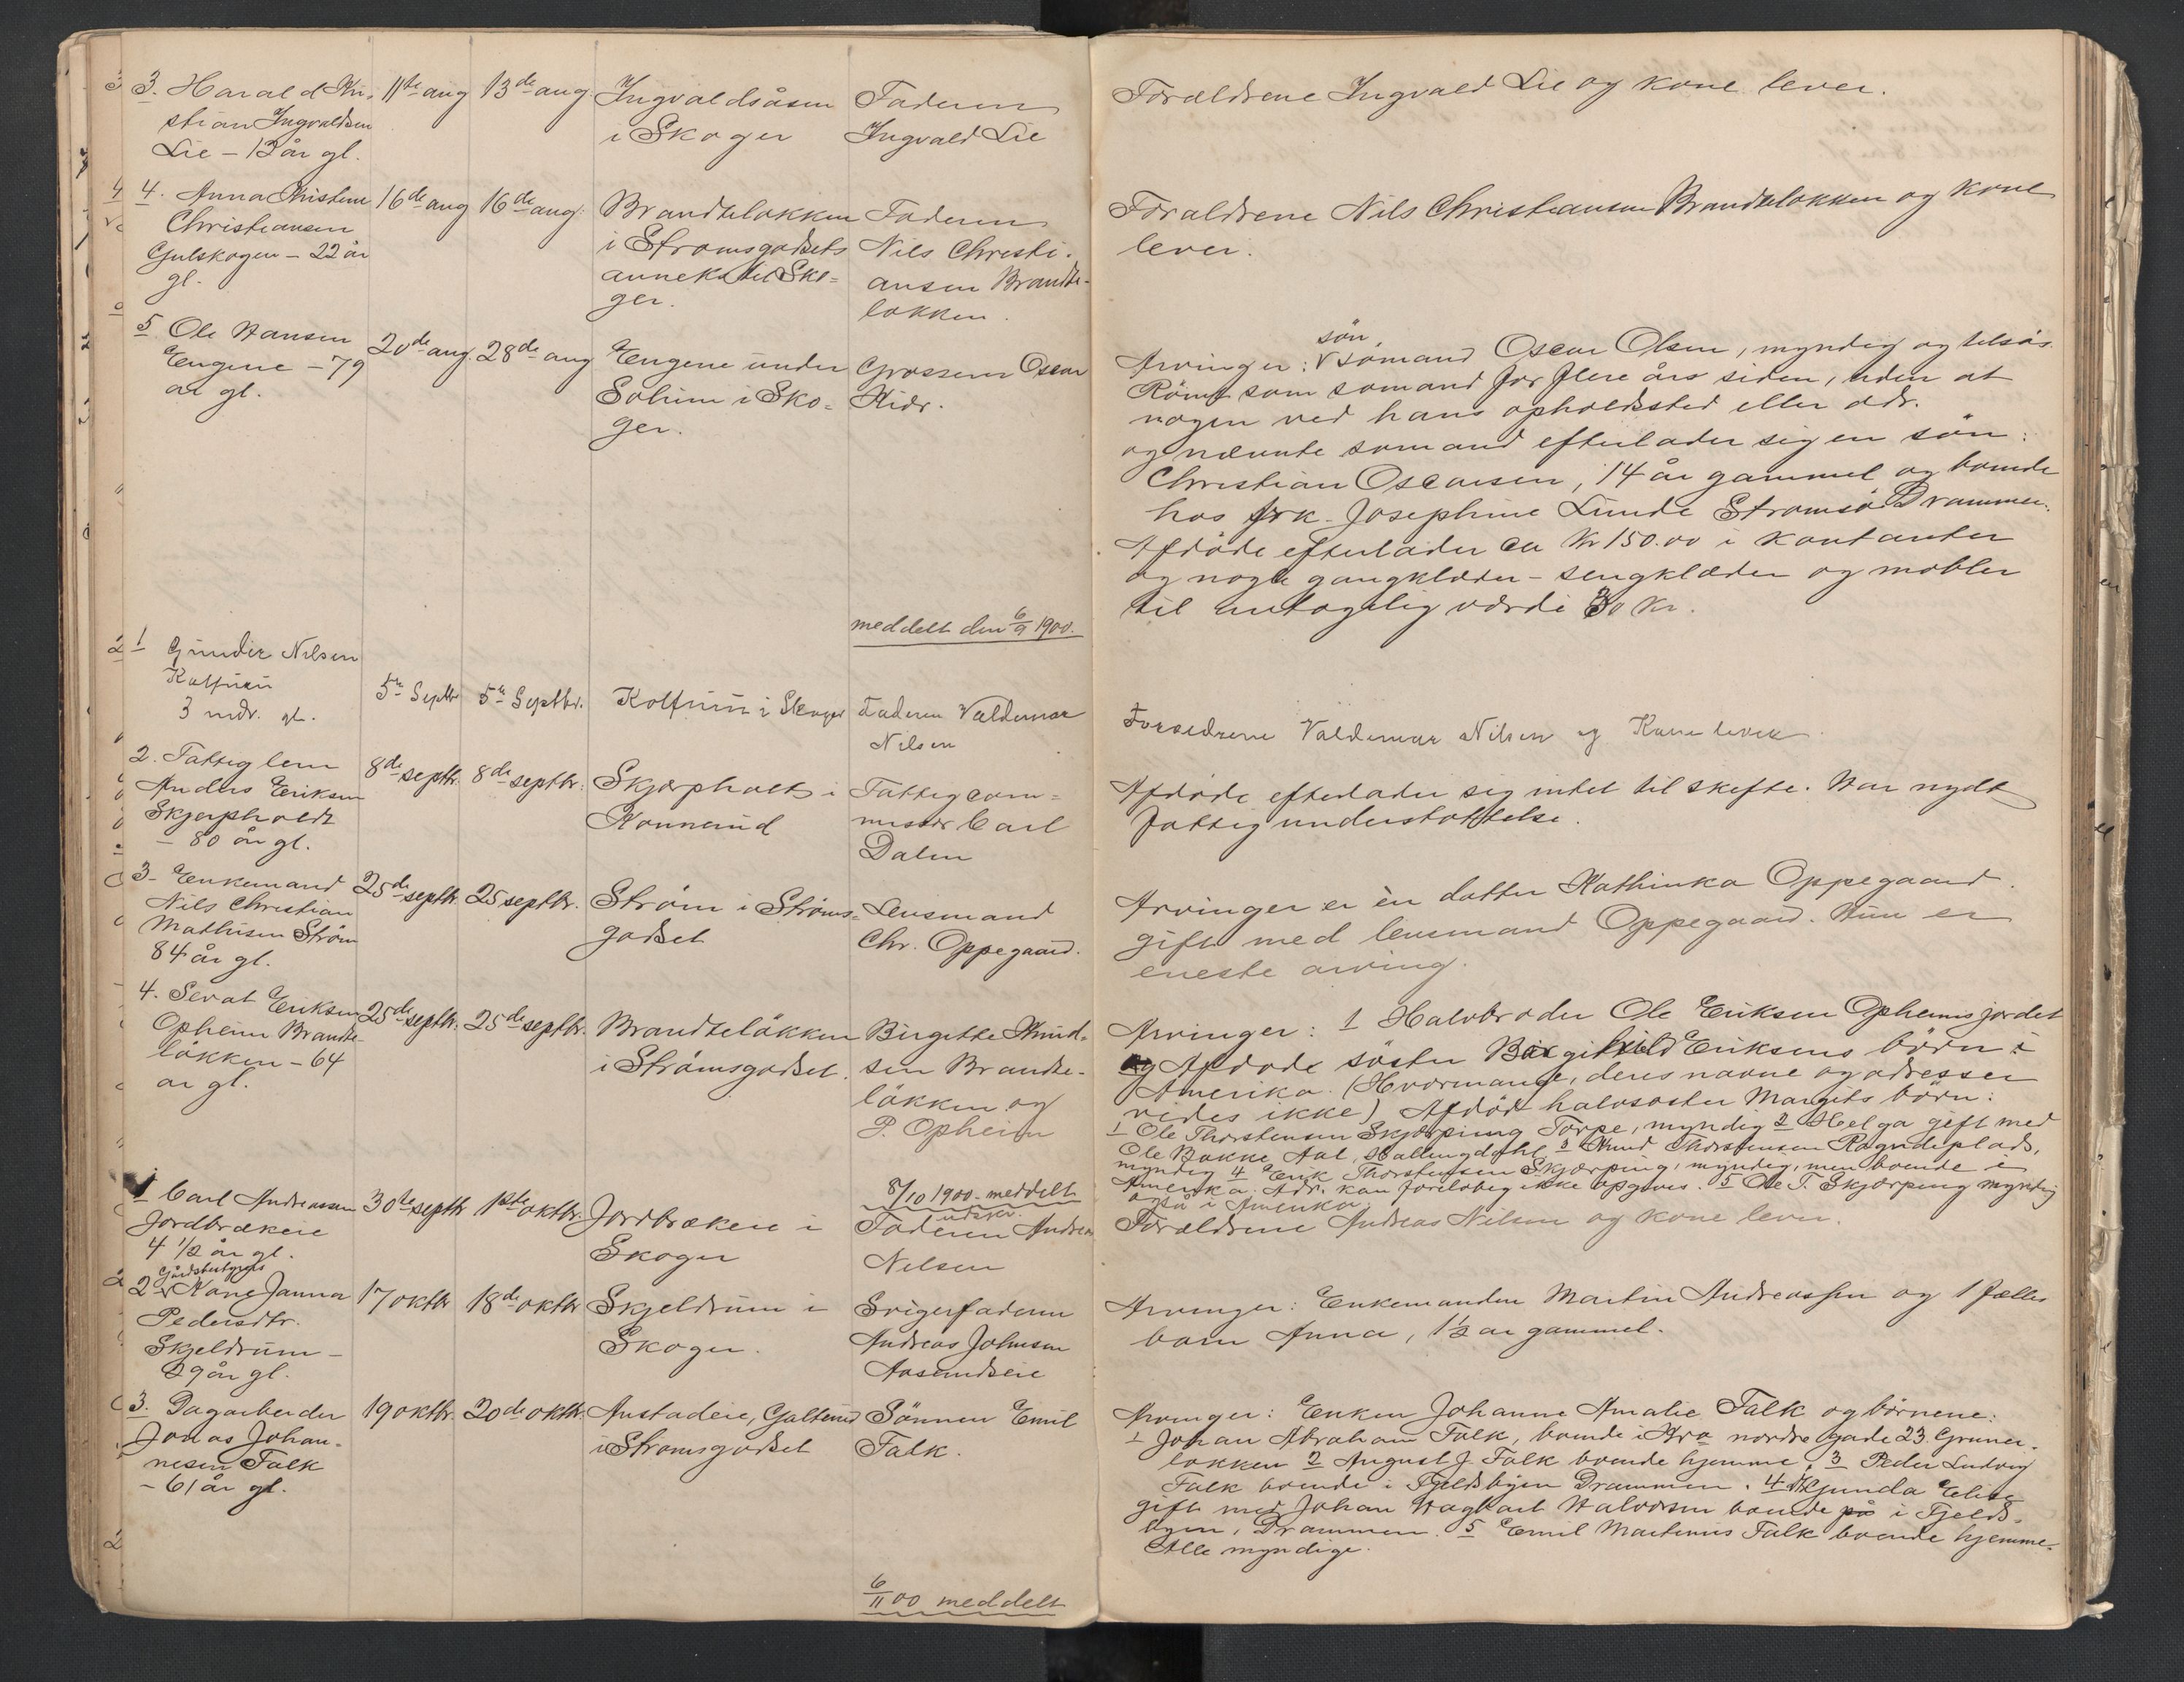 3. Harald Kri- 11te aug 13de aug. Ingvaldsåsen Faderen Forældrene Ingvald Lie og kone lever.
stian Ingvaldsen i Skoger Ingvald Lie
Lie – 13 år gl.
4. Anna Kristine 16de aug 16de aug. Brandteløkken Faderen Forældrene Nils Christiansen Brandteløkken og kone
Christiansen i Strømsgodsets Nils Christi- lever.
Gulskogen – 22 år anneks til Sko- ansen Brandte-
gl. ger. løkken.
5 Ole Hansen 20de aug. 28de aug Engene under Oscar
Engene – 79 Solum i Sko- Kidr.
år gl. ger.
søn,
Arvinger: sømand Oscar Olsen, myndig og tilsøs.
Rømt som sømand for flere års siden, uden at
nogen ved hans opholdssted eller adr.
og nævnte sømand efterlader sig en søn:
Christian Oscarsen, 14 år gammel og boende
hos frk. Josephine Lunde Strømsø Drammen.
Afdøde efterlader ca Kr 150.00 i kontanter
og nogle gangklæder – sengklæder og møbler
til antagelig værdi 30 kr.
meddelt den 6/9 1900.
1 Gunder Nilsen
Kolfuru 5te Septbr 5te Septbr. Kolfuru i Skoger Faderen Valdemar Forældrene Valdemar Nilsen og Kone lever.
3 mdr. gl. Nilsen
2. Fattiglem 8de septbr. 8de septbr. Skjærpholt i Fattigcom- Afdøde efterlader sig intet til skifte. Har nydt
Anders Eriksen Konnerud missær Carl fattigunderstøttelse.
Skjærpholdt Dalen
– 80 år gl.
3– Enkemand 25de septbr. 25 septbr. Strøm i Strøms- Lensmand Arvinger er én datter Kathinka Oppegaard.
Nils Christian godset Chr. Oppegaard. gift med lensmand Oppegaard. Hun er
Mathisen Strøm eneste arving.
84 år gl.
4. Sevat Eriksen 25de septbr. 25de septbr. Brandteløkken Birgitte Knud-
Opheim Brandte- i Strømsgodset. sen Brandte-
løkken – 64 løkken og
år gl. P. Opheim
Arvinger: 1 Halvbroder Ole Eriksen Opheimsjordet
og Afdøde søster Eriksens børn i
Amerika. (Hvormange, deres navne og adresser
vides ikke) Afdød halvsøster Margits børn:
1 Ole Thorstensen Skjærping Torpe, myndig 2 Helga gift med
Ole Bakke Aal, Hallingdahl 3 Knud Thorstensen Ragndeplads,
myndig 4 Erik Thorstensen Skjærping, myndig, men boende i
Amerika. Adr. kan foreløbig ikke opgives. 5 Ole T. Skjærping myndig
også i Amerika.
8/10 1900 – meddelt
udskr.
1 Carl Andreassen 30te septbr 1ste oktbr. Jordbrækeie i Faderen Andreas Forældrene Andreas Nilsen og kone lever.
Jordbrækeie Skoger Nelsen
4 1/2 år gl.
Gårdbestyrers
2 Kone Janna 17 oktbr 18de oktbr Skjeldrum i Svigerfaderen Arvinger: Enkemanden Martin Andreassen og 1 fælles
Pedersdtr. Skoger. Andreas Johnsen barn Anna, 1 1/2 år gammel.
Skjeldrum – Aaserudseie
29 år gl.
3. Dagarbeider 19 oktbr. 20de oktbr. Austadeie, Galterud Sønnen Emil
Jonas Johan- i Strømsgodset Falk.
nesen Falk
– 61 år gl.
Arvinger: Enken Johanne Amalie Falk og børnene:
1 Johan Abraham Falk, boende i Kra nordre gade 23. Gruner-
løkken 2 August J. Falk boende hjemme. 3 Peder Ludvig
Falk boende i Fjeldsbyen Drammen. 4 Elise
gift med Johan Hagbart Halvorsen boende på i Fjelds-
byen, Drammen. 5 Emil Martinius Falk boende hjemme.
Alle myndige.
6/11 00 meddelt